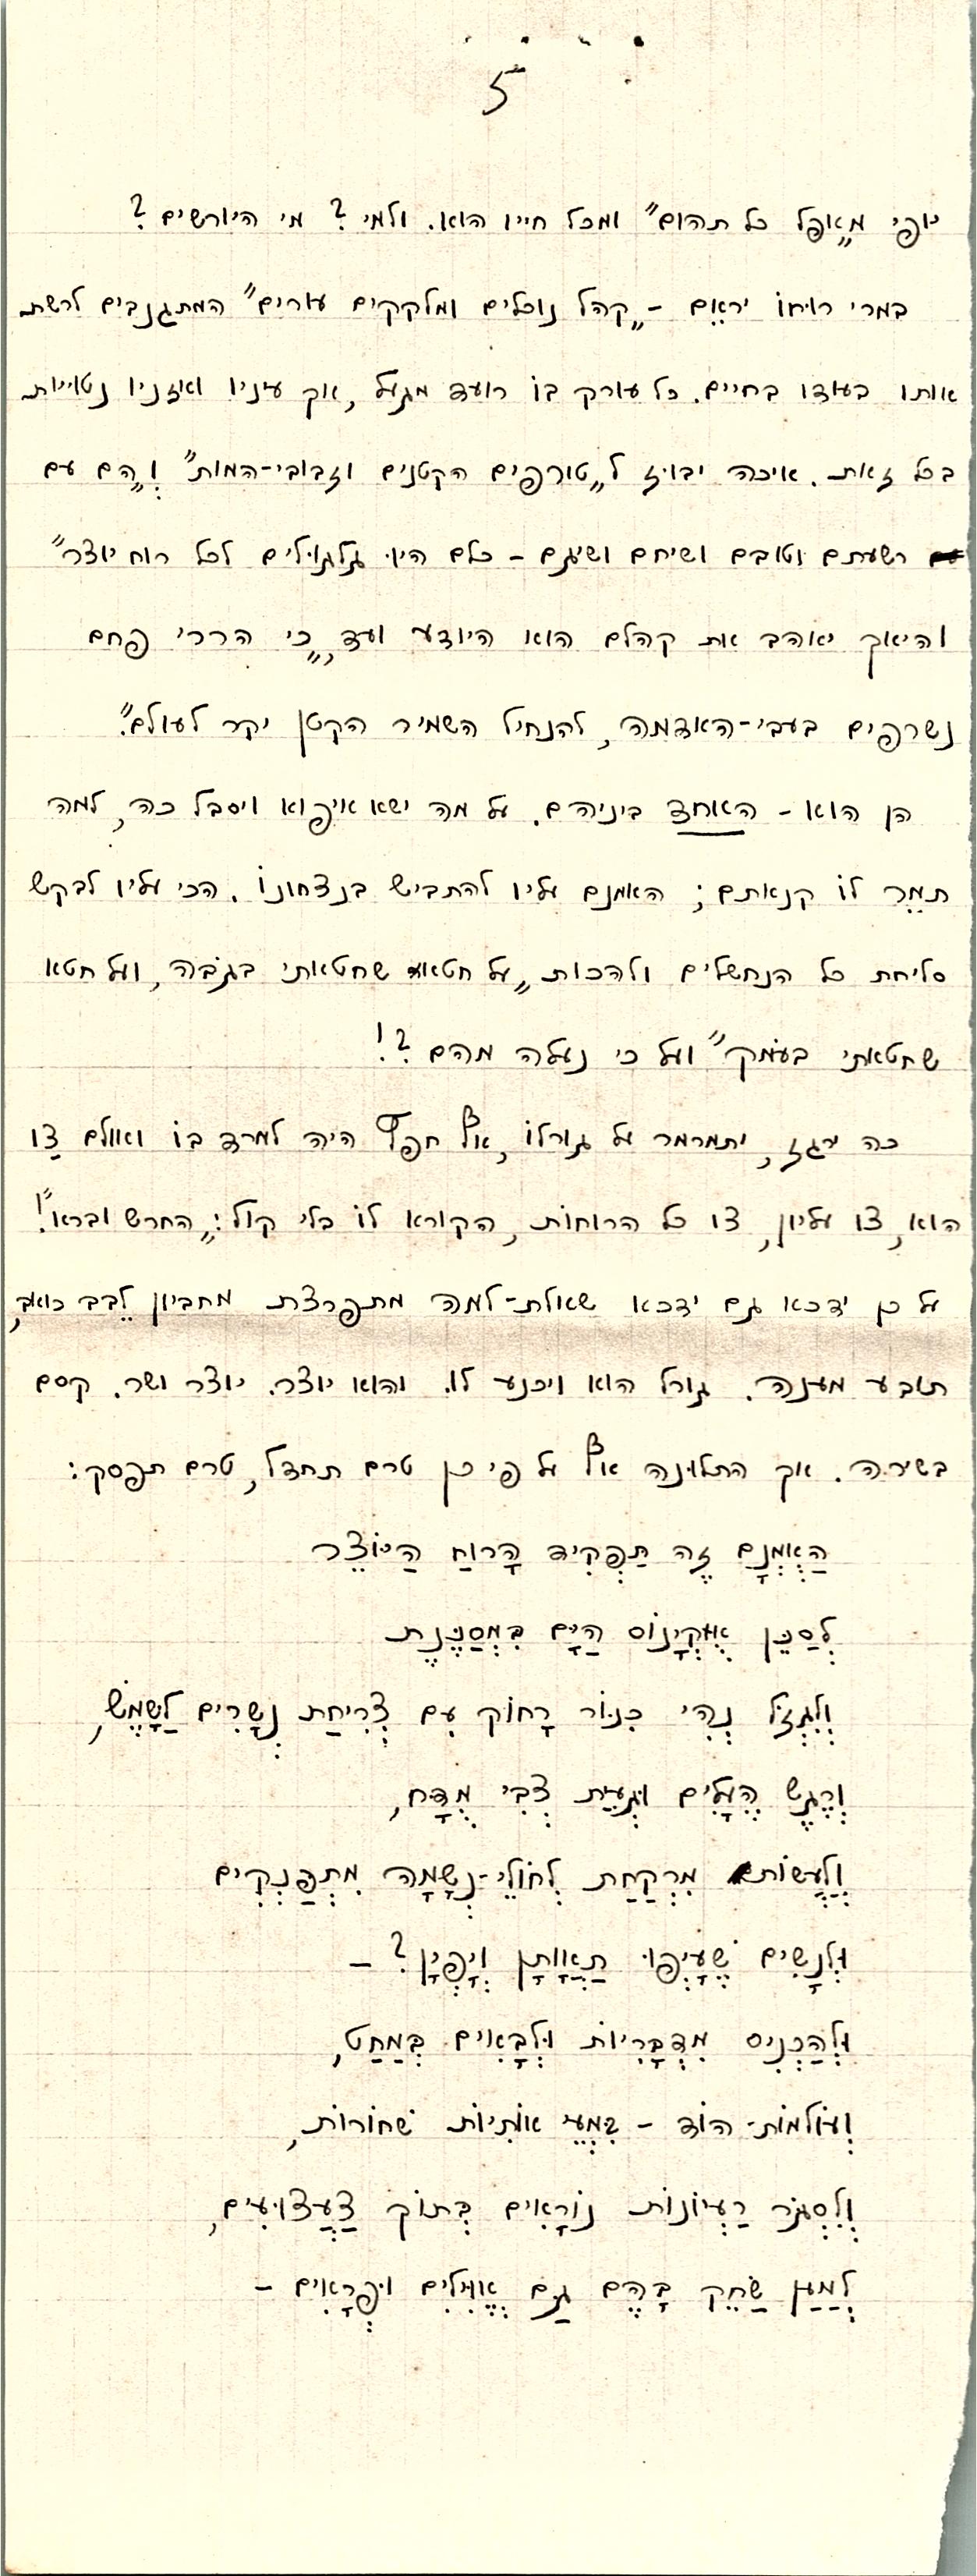 5
יופי מ„אופל כל תהום” ומכל חייו הוא. ולמי? מי היורשים?
במרי רוחו יראם – „קהל נוכלים ומלקקים עורים” המתגנבים לרשת
אותו בעודו בחיים. כל עורק בו רועד מגועל, אך עיניו ואזניו נטויות
בכל זאת. איכה יבוז ל„טורפים הקטנים וזבובי-המות” וְ„הם עם
רשעתם וטובם ושיחם ושיגם – כלם היו גלגולים לכל רוח יוצר”
והיאך יאהב את קהלם הוא היודע ועד „כי הררי פחם
נשרפים בעבי-האדמה, להנחיל השמיר הקטן יקר לעולם”.
הן הוא – האוחד ביניהם. על מה ישא איפוא ויסבל כה, למה
תמר לו קנאתם; האמנם עליו להתביש בנצחונו. הכי עליו לבקש
סליחת כל הנחשלים ולהכות „על חטא שחטאתי בגבה, ועל חטא
שחטאתי בעמק” ועל כי נעלה מהם?!
כה ירגז, יתמרמר על גורלו, אף חפץ היה למרד בו ואולם צַו
הוא, צו עליון, צו כל הרוחות, הקורא לו בלי קול: „החרש וברא”!
על כן ידכא גם ידכא שאלת-למה מתפרצת מחביון לֵבב כואב,
תובע מענה. גורל הוא ויכנע לו. והוא יוצר. יוצר ושר. קסם
בשירה. אך התלונה אף על פי כן טרם תחדל, טרם תפסק:
הַאֻמְנָם זֶה תַּפְקִיד הָרוּחַ הַיּוֹצֵר
לְסַכֵּן אֳקְיָנוֹס הַיָּם בְּמִסְכֶּנֶת
וְלִגְזֹל נְהִי כִּנּוֹר רָחוֹק עִם צְרִיחַת נְשָׁרִים לַשֶּׁמֶשׁ,
וְרֶגֶשׁ הֶעָלִים וּגְעִיַּת צְבִי מֻדָּח,
וְלַעֲשׂוֹתָם מִרְקַחַת לְחוֹלֵי-נְשָׁמָה מִתְפַּנְּקִים
וּלְנָשִׁים שֶׁעָיְפוּ תַּאֲוָתָן וְיָפְיָן? –
וּלְהַכְנִיס מִדְבָּרִיּוֹת וּלְבָאִים בְּמַחַט,
וְעוֹלְמוֹת-הוֹד – בִּמְעֵי אוֹתִיּוֹת שְׁחוֹרוֹת,
וְלִסְגֹּר רַעְיוֹנוֹת נוֹרָאִים בְּתוֹךְ צַעֲצוּעִים,
לְמַעַן שַׂחֵק בָּהֶם גַּם אֱוִילִים וּפְרָאִים –